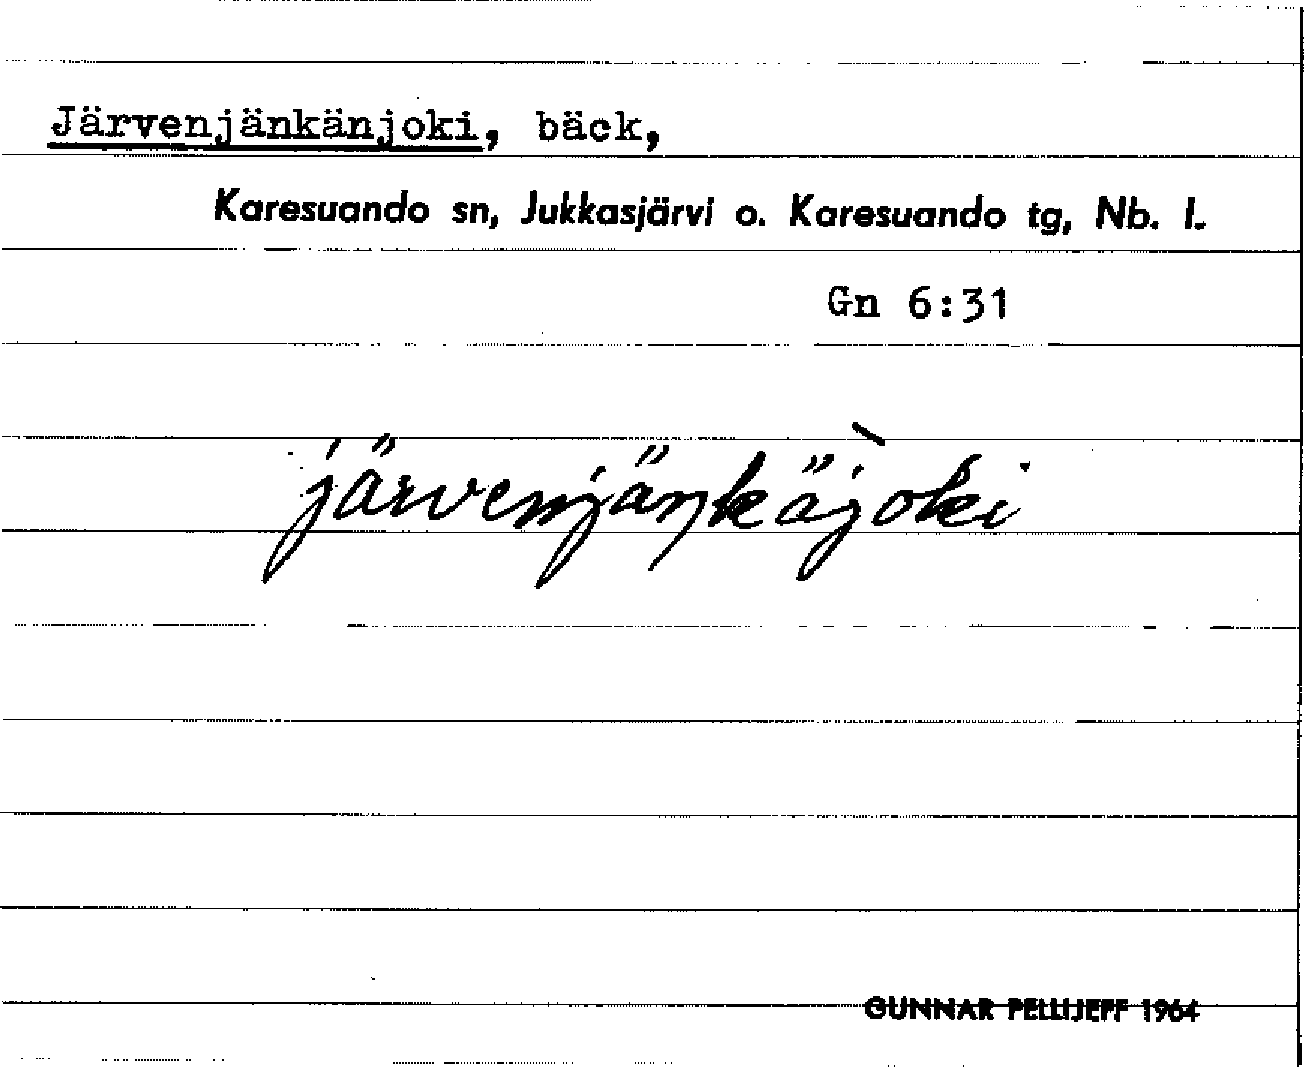 Järvenjänkänjoki, bäck,
Karesuando sn, Jukkasjärvi o. Karesuando tg, Nb. l.
Gn 6:31
järvenjäŋkäjòki
GUNNAR PELLIJEFF 1964